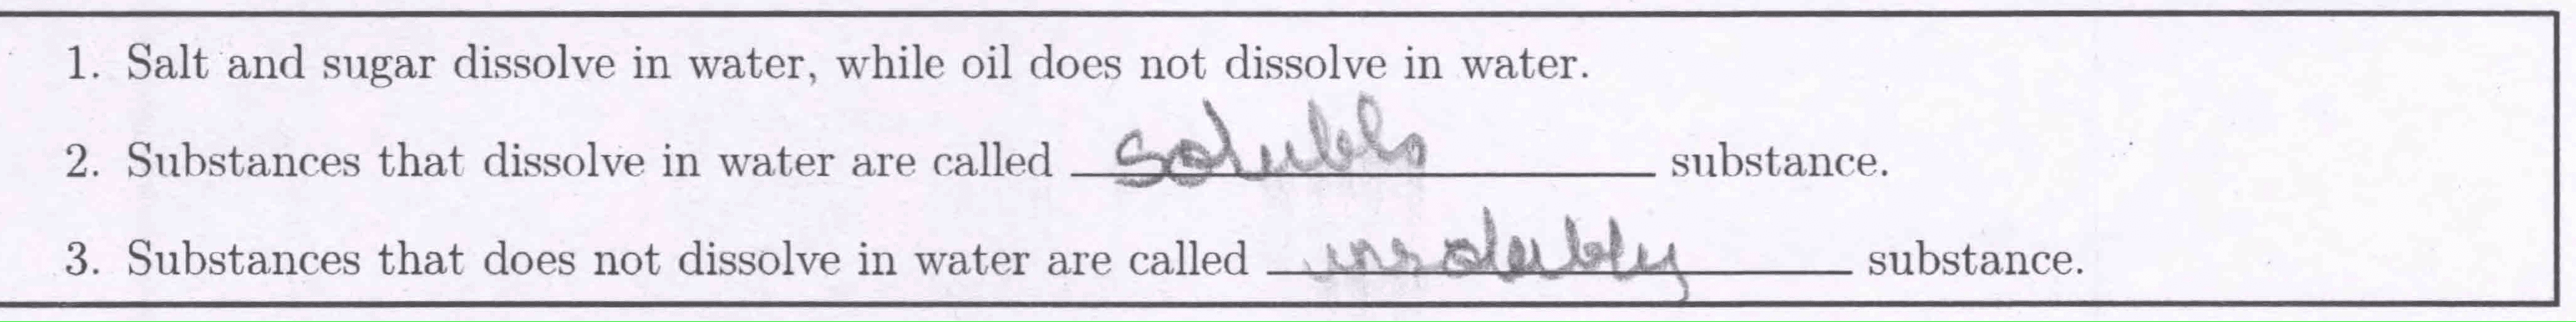 1. Salt and sugar dissolve in water, while oil does not dissolve in water.
2. Substances that dissolve in water are called soluble substance.
3. Substances that does not dissolve in water are called insolubly substance.